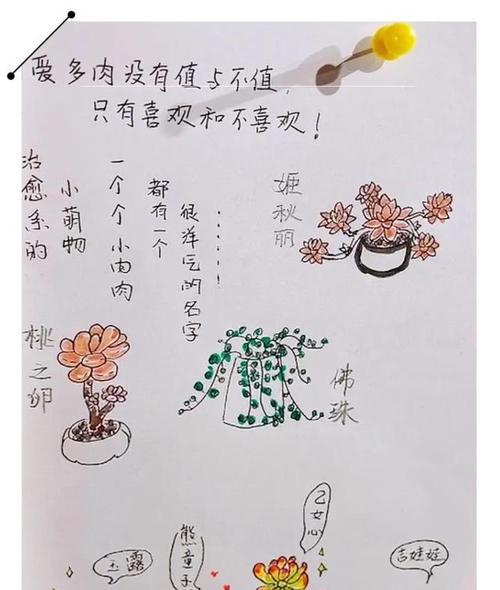 爱多肉没有值与不值，
只有喜欢和不喜欢！
治愈系的
小萌物
一个个小肉肉
都有一个
很洋气的名字
……！
姬秋丽
桃之卵
佛珠
乙女心
熊童子
玉露
吉娃娃